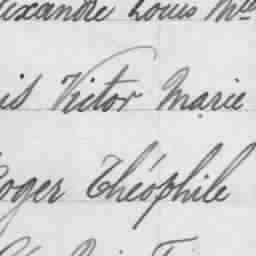 lexandre Louis M
is Victor Marie
oger Théophile